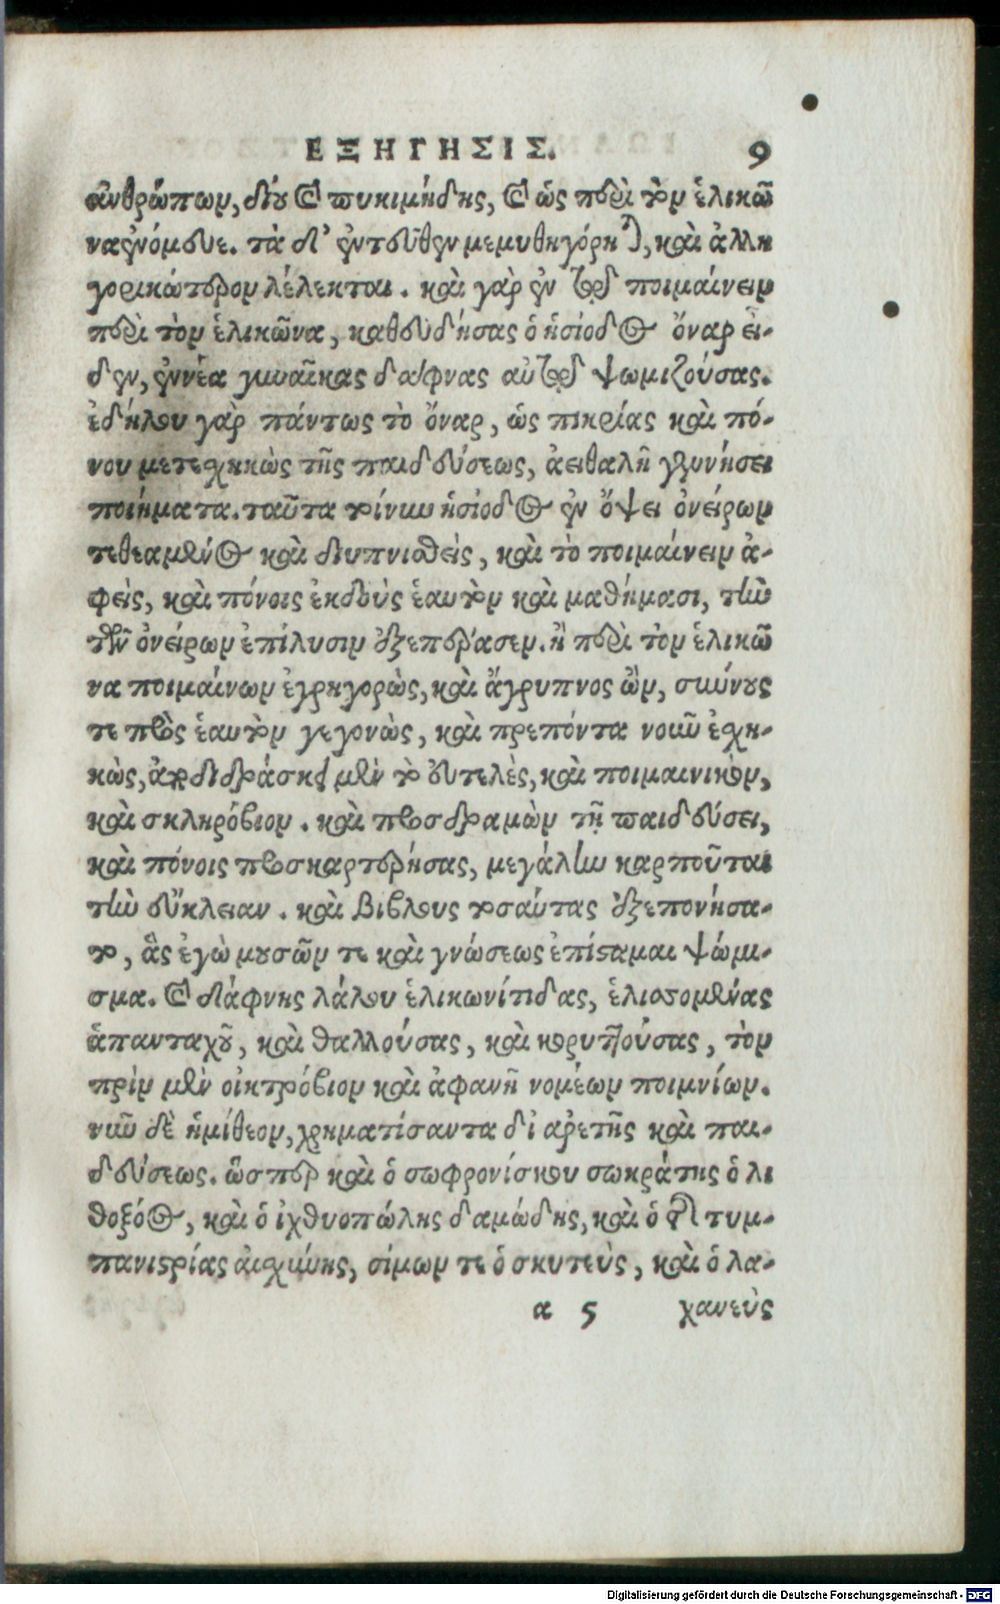 ΕΞΗΓΗΣΙΣ. 9
ἀνθρώπων, δίου καὶ πυκιμήδης, καὶ ὡς περὶ τὸν ἑλικῶ
να ἐνόμευε. τὰ δ' ἐντεῦθεν μεμυθηγόρηται, καὶ ἀλλη
γορικώτερον λέλεκται. καὶ γὰρ ἐν τῷ ποιμαίνειν
περὶ τὸν ἑλικῶνα, καθευδήσας ὁ ἡσίοδος ὄναρ εἶ-
δεν, ἐννέα γυναῖκας δάφνας αὐτὸν ψωμιζούσας.
ἐδήλου γὰρ πάντως τὸ ὄναρ, ὡς πικρίας καὶ πό-
νου μετεσχηκὼς τῆς παιδεύσεως, ἀειθαλῆ γεννήσει
ποιήματα. ταῦτα τοίνυν ἡσίοδος ἐν ὄψει ὀνείρων
τεθεαμένος καὶ διυπνισθεὶς, καὶ τὸ ποιμαίνειν ἀ-
φεὶς, καὶ πόνοις ἐκδοὺς ἑαυτὸν καὶ μαθήμασι, τὴν
τῶν ὀνείρων ἐπίλυσιν ἐξεπέρασεν. ἢ περὶ τὸν ἑλικῶ
να ποιμαίνων ἐγρηγορὼς, καὶ ἄγρυπνος ὢν, σύννους
τε πρὸς ἑαυτὸν γεγονὼς, καὶ πρέποντα νοῦν ἐσχη-
κὼς, ἀποδιδράσκει μὲν τὸ εὐτελὲς, καὶ ποιμαινικὸν,
καὶ σκληρόβιον. καὶ προσδραμὼν τῇ παιδεύσει,
καὶ πόνοις προσκαρτερήσας, μεγάλην καρποῦται
τὴν εὔκλειαν. καὶ βίβλους τοσαύτας ἐξεπονήσα-
το, ἃς ἐγὼ μουσῶν τε καὶ γνώσεως ἐπίσταμαι ψώμι-
σμα. καὶ δάφνης λάλου ἑλικωνίτιδας, ἑλισσομένας
ἁπανταχοῦ, καὶ θαλλούσας, καὶ κορυπτούσας, τὸν
πρὶν μὲν οἰκτρόβιον καὶ ἀφανῆ νομέων ποιμνίων.
νῦν δὲ ἡμίθεον, χρηματίσαντα δι ἀρετῆς καὶ παι-
δεύσεως. ὥσπερ καὶ ὁ σωφρονίσκου σωκράτης ὁ λι
θοξόος, καὶ ὁ ἰχθυοπώλης δαμώδης, καὶ ὁ τῆς τυμ-
πανιστρίας αἰσχίνης, σίμων τε ὁ σκυτεὺς, καὶ ὁ λα-
a 5 χανεὺς
Digitalisierung gefördert durch die Deutsche Forschungsgemeinschaft - DFG